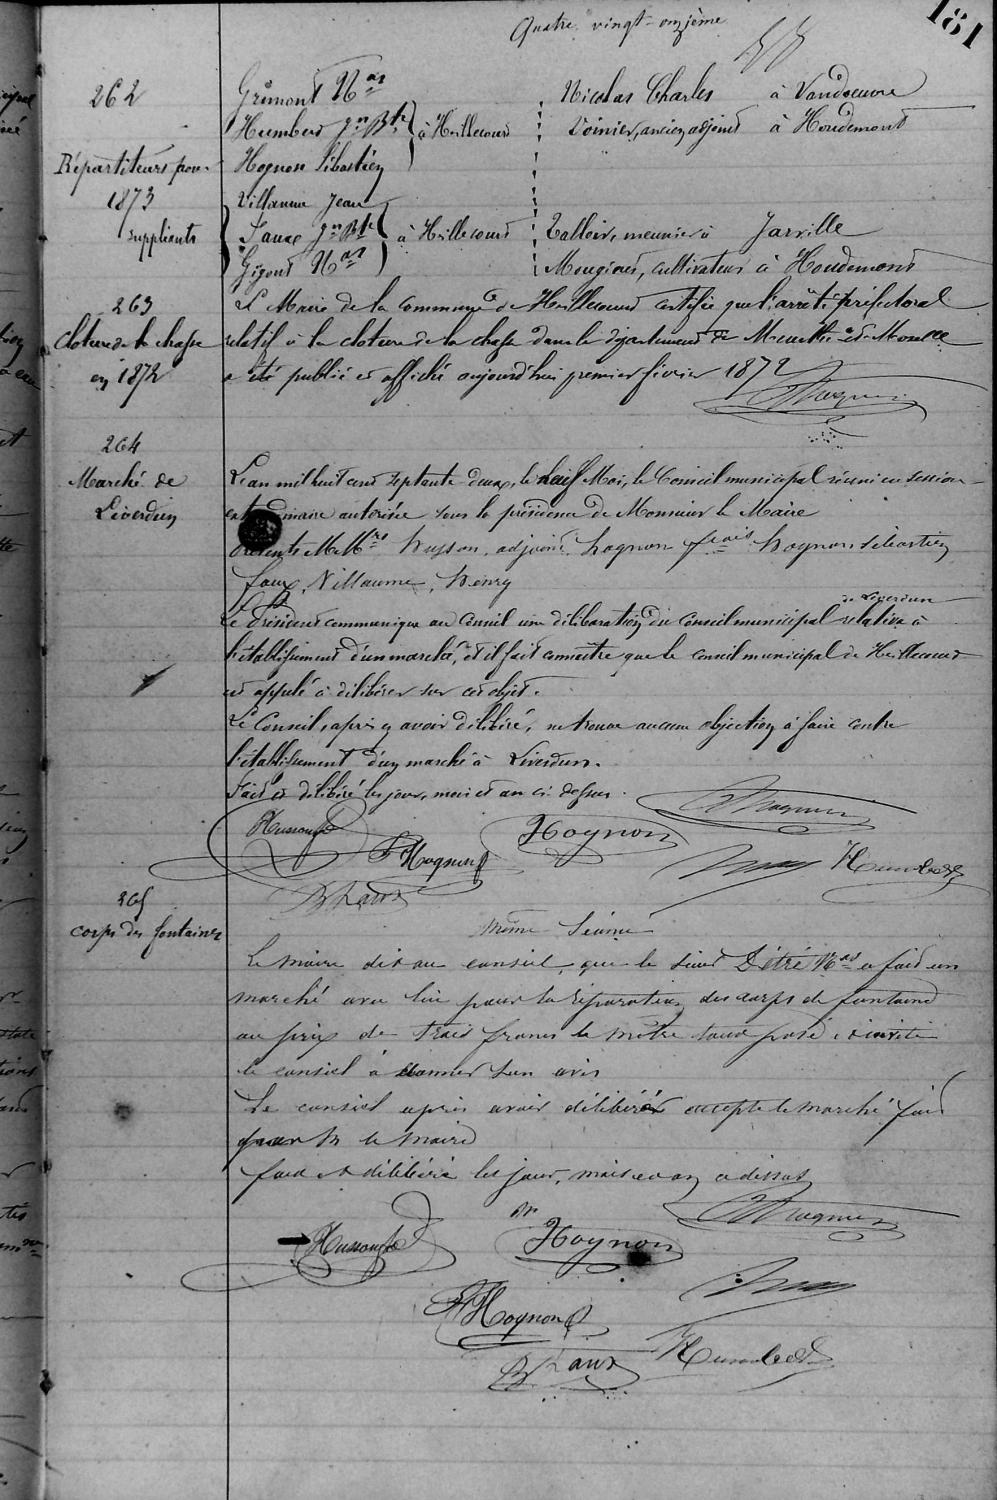 Quatre vingt-onzième
181
262
Répartiteurs pour
1873
suppliants
Grimont Nas
Humbert Jn Bte à Heillecourt
Hognon Sébastien
Villaume Jean
Faux Jn Bte à Heillecourt
Gigout Nas
Nicolas Charles à Vandoeuvre
Voinier, ancien adjoint à Houdemont
Talloir, meunier à Jarville
Mougeot, cultivateur à Houdemont
263
Cloture de la chasse
en 1872
Le Maire de la commune de Heillecourt certifie que l'arrêté préfectoral
relatif à la cloture de la chasse dans le département de Meurthe et Moselle
a été publié et affiché aujourd'hui premier février 1872
264
Marché de
Liverdun
L'an mil huit cent septante deux, le neuf Mai, le Conseil municipal réuni en session
extraordinaire autorisée sous la présidence de Monsieur le Maire
Présents MM.rs Husson, adjoint, Hognon fçois Hognon Sébastien
faux, Villaume, Henry
Le Président communique au Conseil une délibération du Conseil municipal de Liverdun relative à
l'établissement d'un marché, et il fait connaître que le conseil municipal de Heillecourt
est appelé à délibérer sur cet objet.
Le Conseil, après y avoir délibéré, ne trouve aucune objection à faire contre
l'établissement d'un marché à Liverdun.
Fait et délibéré les jour, mois et an ci-dessus.
Husson
S Hognon
Hognon
Humbert
B Faux
265
corps des fontaines
même Séance
Le maire dit au conseil, que le sieur Détré Nas a fait un
marché avec lui pour la réparation des corps de fontaine
au prix de trois francs le mètre tout posé, et invite
le conseil à donner son avis
Le conseil après avoir délibéré accepte le marché fait
par Mr le maire
fait et délibéré les jour, mois et an ci dessus
Husson
Hognon
S Hognon
B Faux
Humbert